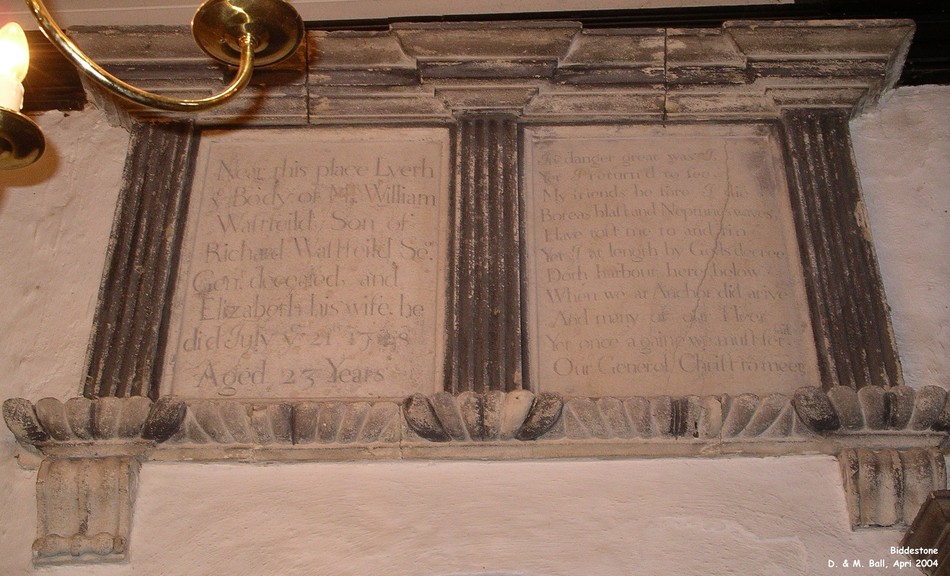 Near this place Lyeth
yͤ Body of Mͬ William
Wattfeild Son of
Richard Wattfeild Seͬ.
Gen. deceased, and
Elizabeth his wife. he
did July yͤ 21 17
Aged 23 Years
danger great
Yet I return'd to see
My friends be fore I die
Boreas blast and Neptuns waves
Have tost me to and fro
Yet I at length by Gods decree
Doth harbour here below
When we at Anchor did arive
And many of our Fleet
Yet once a gaine we must set
Our General Christ to meet
Biddestone
D. & M. Ball, Apri 2004